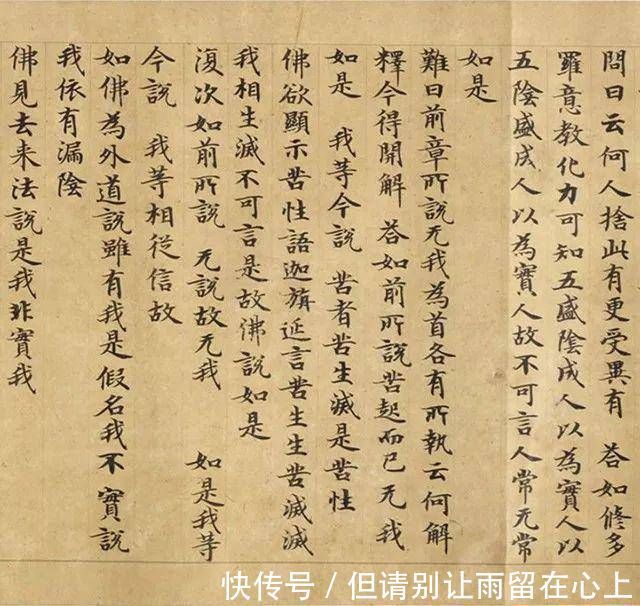 問曰云何人捨此有更受異有 荅如修多
羅意教化力可知五盛陰成人以為實人以
五陰盛成人以為實人故不可言人常无常
如是
難曰前章所說无我為首各有所執云何解
釋今得開解 荅如前所說苦起而已无我
如是 我等今說 苦者苦生滅是苦性
佛欲顯示苦性語迦旃延言苦生生苦滅滅
我相生滅不可言是故佛說如是
復次如前所說 无說故无我 如是我等
今說 我等相從信故
如佛為外道說雖有我是假名我不實說
我依有漏陰
佛見去来法說是我非實我
快传号/但请别让雨留在心上